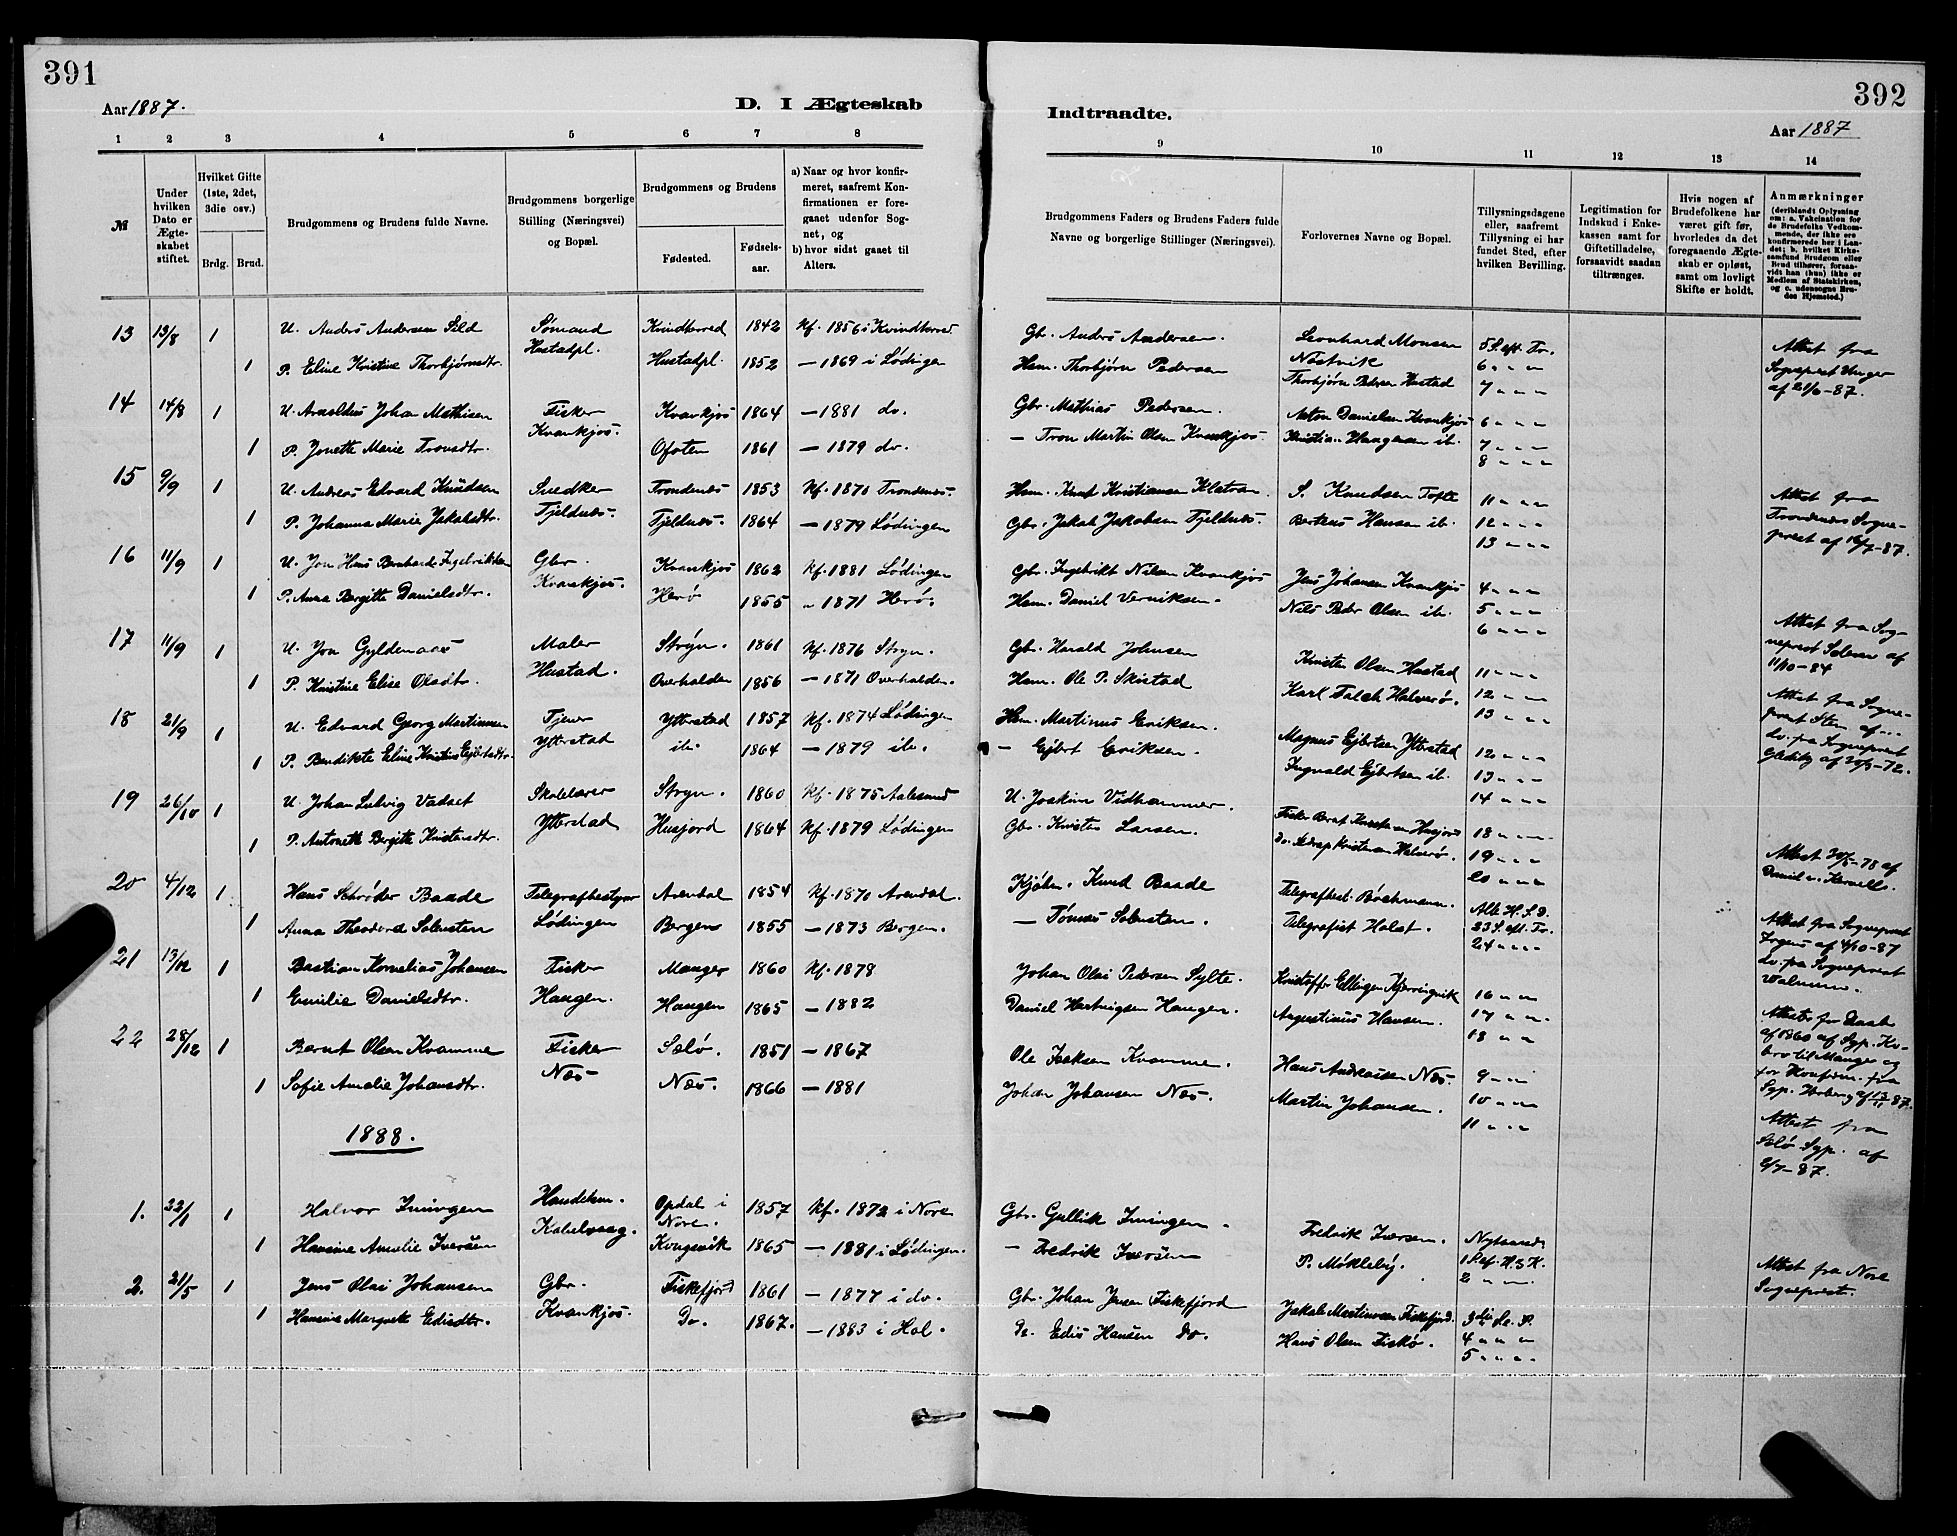 391
Aar 1887.
D. I Ægteskab
1 2 3 4 5 6 7 8
№
Under hvilken Dato er Ægteskabet stiftet.
Hvilket Gifte (1ste, 2det, 3die osv.)
Brdg. Brud.
Brudgommens og Brudens fulde Navne.
Brudgommens borgerlige Stilling (Næringsvei) og Bopæl.
Brudgommens og Brudens
Fødested. Fødselsaar.
a) Naar og hvor konfirmeret, saafremt Konfirmationen er foregaaet udenfor Sognet, og
b) hvor sidst gaaet til Alters.
13 13/8 1 U. Anders Andersen Sømand Kvindherred 1842 Kf. 1856 i Kvindherred
1 P. Eline Kristine Thorbjørnsdtr. Hustadpl. Hustadpl 1852 — 1869 i Lødingen
14 14/8 1 U. Arnoldus Johan Mathisen Fisker Kvankjos 1864 — 1881 do.
1 P. Jonette Marie Tronsdtr. Kvankjos. Ofoten 1861 — 1879 do.
15 9/9 1 U. Andreas Edvard Knudsen Snedker Trondenes 1853 Kf. 1870 Trondenes.
1 P. Johanna Marie Jakobsdtr. Tjeldnes. Tjeldnes. 1864 — 1879 Lødingen
16 11/9 1 U. Jon Hans Bernhard Ingebriktsen Gbr. Kvankjos 1862 Kf. 1881 Lødingen
1 P. Anna Bergitte Danielsdtr. Kvankjos. Herø 1855 " 1871 Herø.
17 11/9 1 U. Jon Gyldenaas Maler Stryn. 1861 Kf. 1876 Stryn.
1 P. Kristine Elise Olsdtr. Hustad. Overhalden 1856 — 1871 Overhalden.
18 21/9 1 U. Edvard Georg Martinusen Tjener Ytterstad 1857 Kf. 1874 Lødingen
1 P. Bendikte Eline Kristine Ejlertsdtr. Ytterstad ib. 1864 — 1879 ib.
19 26/10 1 U. Johan Ludvig Vadset Skolelærer Stryn. 1860 Kf. 1875 Aalesund
1 P. Antonette Bergitte Kristensdtr. Ytterstad Husjord 1864 Kf. 1879 Lødingen
20 4/12 1 Hans Schrøder Baade Telegrafbestyrer Arendal 1854 Kf. 1870 Arendal.
1 Anna Theodora Solensten Lødingen Bergen 1855 — 1873 Bergen.
21 13/12 1 Bastian Kornelius Johansen Fisker Manger 1860 Kf. 1878
1 Emilie Danielsdtr. Haugen. Haugen 1865 — 1882
22 28/12 1 Bernt Olsen Kvamme Fisker Selø. 1851 — 1867
1 Sofie Amalie Johansdtr. Nes Nes. 1866 — 1881
1888.
1. 22/1 1 Halvor Imingen Handelsm. Opdal i Nore. 1857 Kf. 1872 i Nore
1 Hansine Amalie Iversen Kabelvaag. Kongsvik 1865 — 1881 i Lødingen.
2. 21/5 1 Jens Olai Johansen Gbr. Fiskefjord 1861 — 1877 i do.
1 Hansine Margrete Edisdtr. Kvankjos. Do. 1867. — 1883 i Hol.
392
Indtraadte.
Aar 1887
9 10 11 12 13 14
Brudgommens Faders og Brudens Faders fulde Navne og borgerlige Stillinger (Næringsvei).
Forlovernes Navne og Bopæl.
Tillysningsdagene eller, saafremt Tillysning ei har fundet Sted, efter hvilken Bevilling.
Legitimation for Indskud i Enkekassen samt for Giftetilladelse, forsaavidt saadan tiltrænges.
Hvis nogen af Brudefolkene har været gift før, hvorledes da det foregaaende Ægteskab er opløst, samt om lovligt Skifte er holdt.
Anmærkninger (deriblandt Oplysning om: a. Vakcination for de Brudefolks Vedkommende, der ikke ere konfirmerede her i Landet; b. hvilket Kirkesamfund Brudgom eller Brud tilhører, forsaavidt han (hun) ikke er Medlem af Statskirken, og c. udensogns Brudes Hjemsted.)
Gbr. Anders Andersen. Leonhard Monsen 5 S. eft. Tr. Attest fra
Hsm. Thorbjørn Pedersen Nøstvik 6 " " " Sogneprest Unger
Thorbjørn Peders Hustad 7 " " " af 21/6-87.
Gbr. Mathias Pedersen. Anton Danielsen Kvankjos 6 " " "
— Tron Martin Olsen Kvankjos. Kristian Haagensen ib. 7 " " "
8 " " "
Hsm. Knut Kristiansen S. Knudsen Tofte 11 " " " Attest fra
Gbr. Jakob Jakobsen Tjeldnes. Berteus Hansen ib. 12 " " " Trondenes Sogne-
13 " " " prest af 16/7-87.
Gbr. Ingebrikt Nilsen Kvankjos Jens Johansen Kvankjos 4 " " "
Hsm. Daniel Verniksen. Nils Peder Olsen ib. 5 " " "
6 " " "
Gbr. Harald Johnsen Kristen Olsen Hustad 11 " " " Attest fra Sog-
Hsm. Ole P. Skistad Karl Falch Halverø. 12 " " " neprest af
13 " " " 11/10-84
Hsm. Martinus Eriksen. Magnus Ejlertsen Ytterstad 12 " " " Attest fra Sogne-
— Ejlert Eriksen. Ingvald Ejlertsen ib. 13 " " " prest Sten af
14 " " " Do. fra Sogneprest
Gleditz af 20/9-72.
U. Joakim Vidhammer. Fisker Bernt Husjord 18 " " "
Gbr. Kristen Larsen. do. Kristensen Halverø. 19 " " "
20 " " " Attest 20/5-78 af
Kjøbm. Knud Baade Telegrafbest. Bøchmann. Alb. H. S. D. Daniel
— Tønnes Solensten. Telegrafist Holst. 23 S. eft. Tr.
24 " " "
Attest fra Sogneprest
Johan Olai Pedersen Sylte. Kristoffer Ellingsen Kjerringvik 16 " " af 4/10-87
Daniel Hartvigsen Haugen. Augustinus Hansen. 17 " " Do. fra Sogneprest
18 " "
Ole Iseksen Kvamme. Hans Andreassen Nes. 9 " " Attester for Daab
Johan Johansen Nes. Martin Johansen. 10 " " af 1860 af Sgp.
11 " " til Manger og
for Konfirm. fra
Sgp. af 13/11 87.
Attest fra
Selø Sgp. af
2/7-87.
Gbr. Gullik Imingen. Fredrik Iversen. Nytaarsd.
— Fredrik Iversen P. Møkleby. 1 S. ef. H3K. Attest fra Nore
2 " " Sogneprest.
Gbr. Johan Jensen Fiskefjord Jakob Martinussen Fiskefjord. 3die S. P.
Do. Edis Hansen do. Hans Olsen Fiskø. 4 " " "
5 " " "